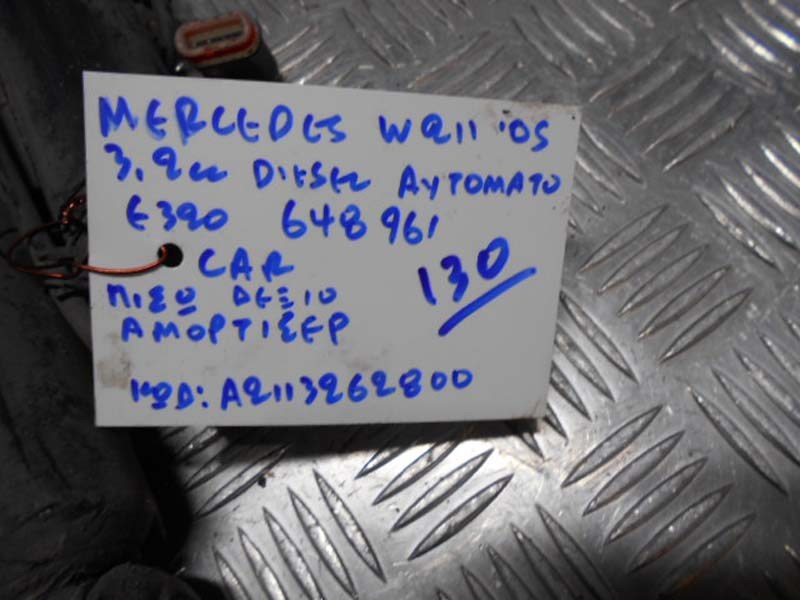 MERCEDES W211 '05
3,2cc DIESEL ΑΥΤΟΜΑΤΟ
E320 648 961
CAR
ΠΙΣΩ ΔΕΞΙΟ
130
ΑΜΟΡΤΙΣΕΡ
ΚΩΔ: A2113262800